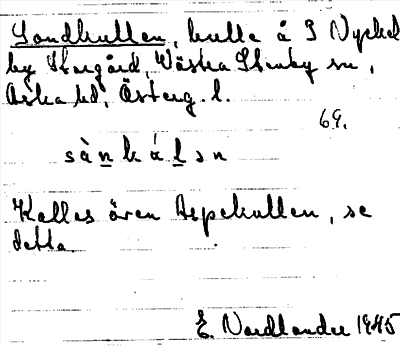 Sandkullen, kulle å S Nyckel
by Storgård, Västra Stenby sn,
Aska hd, Österg. l.
69.
sànkáḷən
Kallas även Aspekullen, se
detta.
E. Nordlander 1945